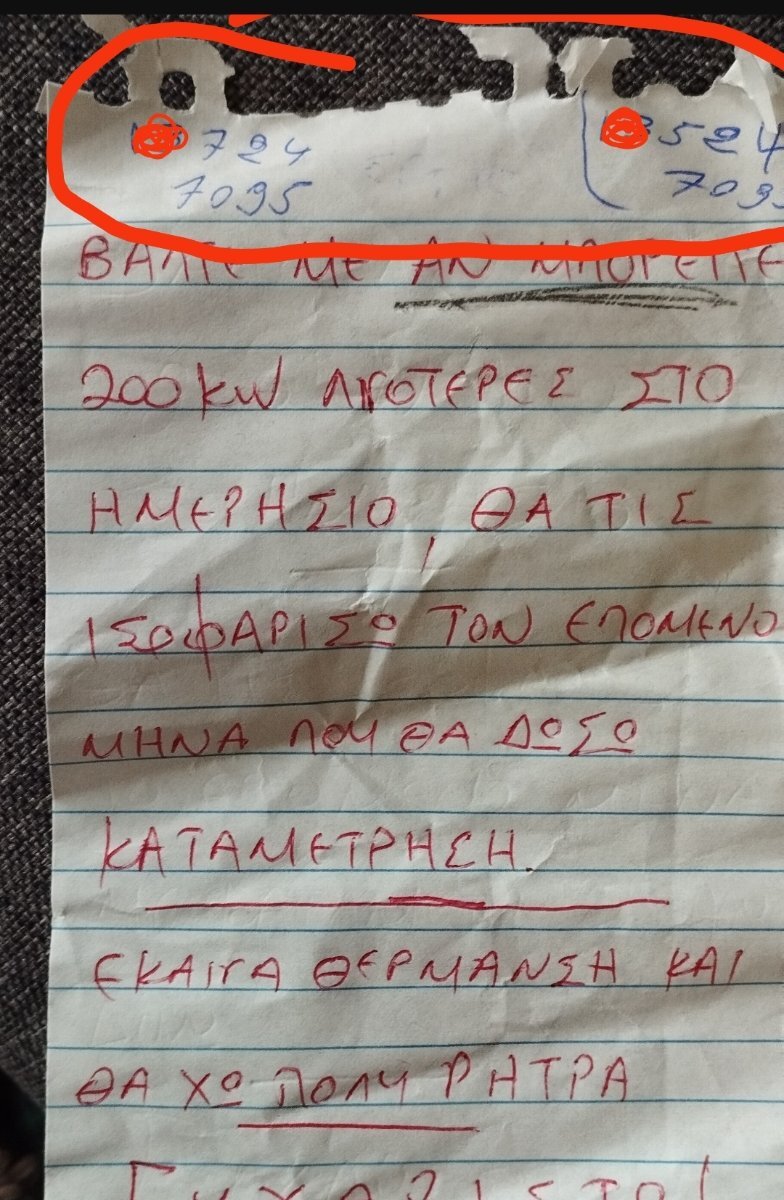 724 524
7095 709
ΒΑΛΤΕ ΜΕ ΑΝ ΜΠΟΡΕΙΤΕ
200 kW ΛΙΓΟΤΕΡΕΣ ΣΤΟ
ΗΜΕΡΗΣΙΟ, ΘΑ ΤΙΣ
ΙΣΟΦΑΡΙΣΩ ΤΟΝ ΕΠΟΜΕΝΟ
ΜΗΝΑ ΠΟΥ ΘΑ ΔΩΣΩ
ΚΑΤΑΜΕΤΡΗΣΗ.
ΕΚΑΙΓΑ ΘΕΡΜΑΝΣΗ ΚΑΙ
ΘΑ ΧΩ ΠΟΛΥ ΡΗΤΡΑ